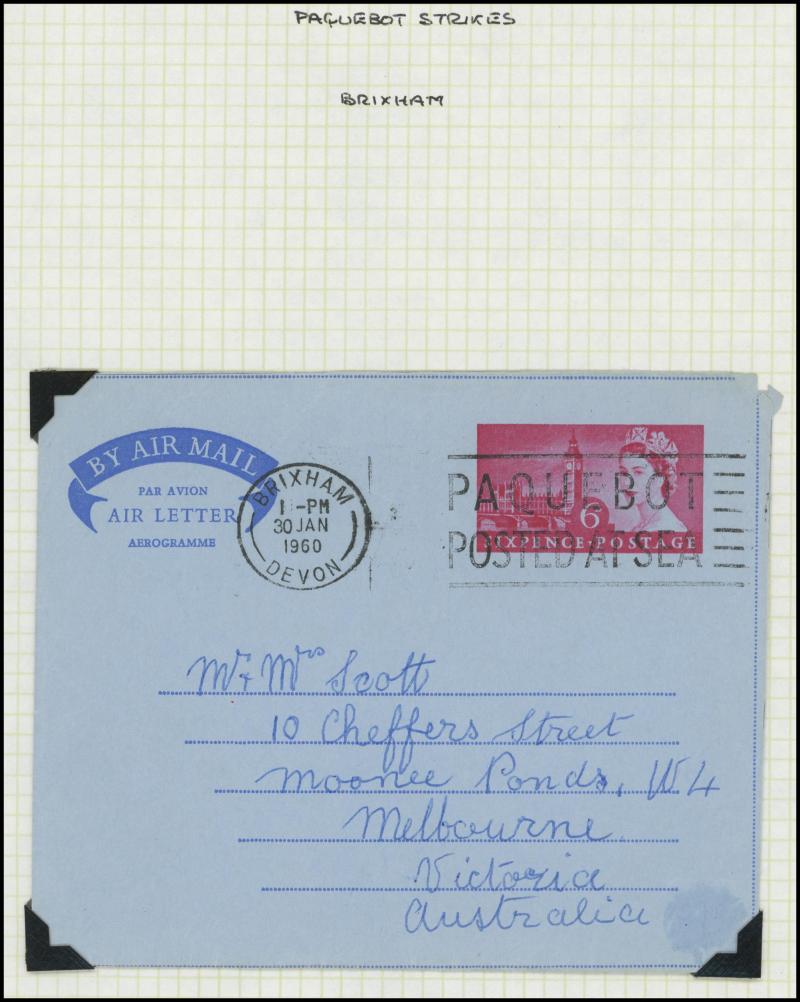 PAQUEBOT STRIKES
BRIXHAM
BY AIR MAIL
PAR AVION
AIR LETTER
AEROGRAMME
BRIXHAM
-PM
30 JAN
1960
DEVON
PAQUEBOT
POSTED AT SEA
6
SIXPENCE·POSTAGE
Mr & Mrs Scott
10 Cheffers Street
Moonee Ponds, W4
Melbourne
Victoria
Australia